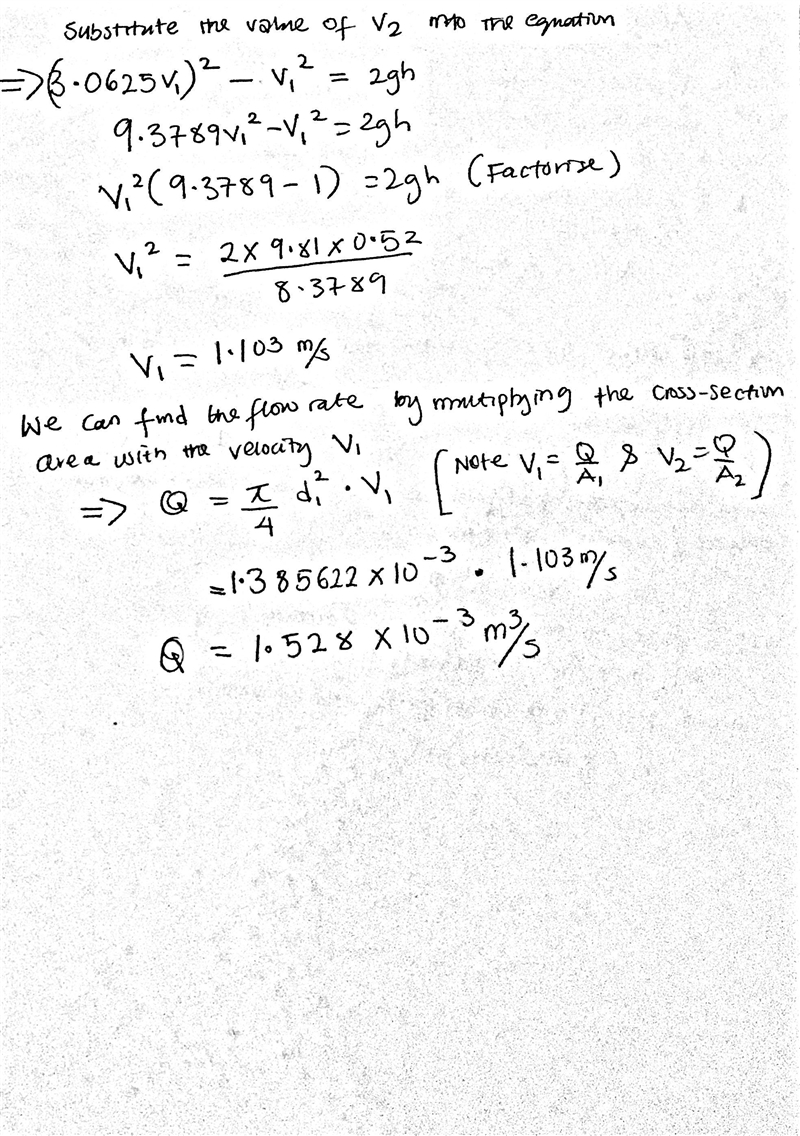 Substitute the value of V₂ into the equation
=> (3.0625V₁)² − V₁² = 2gh
9.3789V₁² − V₁² = 2gh
V₁²(9.3789 − 1) = 2gh (Factorise)
V₁² = 2 × 9.81 × 0.52 / 8.3789
V₁ = 1.103 m/s
We can find the flow rate by multiplying the cross-section
area with the velocity V₁
=> Q = π/4 d₁² · V₁ [Note V₁ = Q/A₁ & V₂ = Q/A₂)
= 1.385622 × 10⁻³ · 1.103 m/s
Q = 1.528 × 10⁻³ m³/s